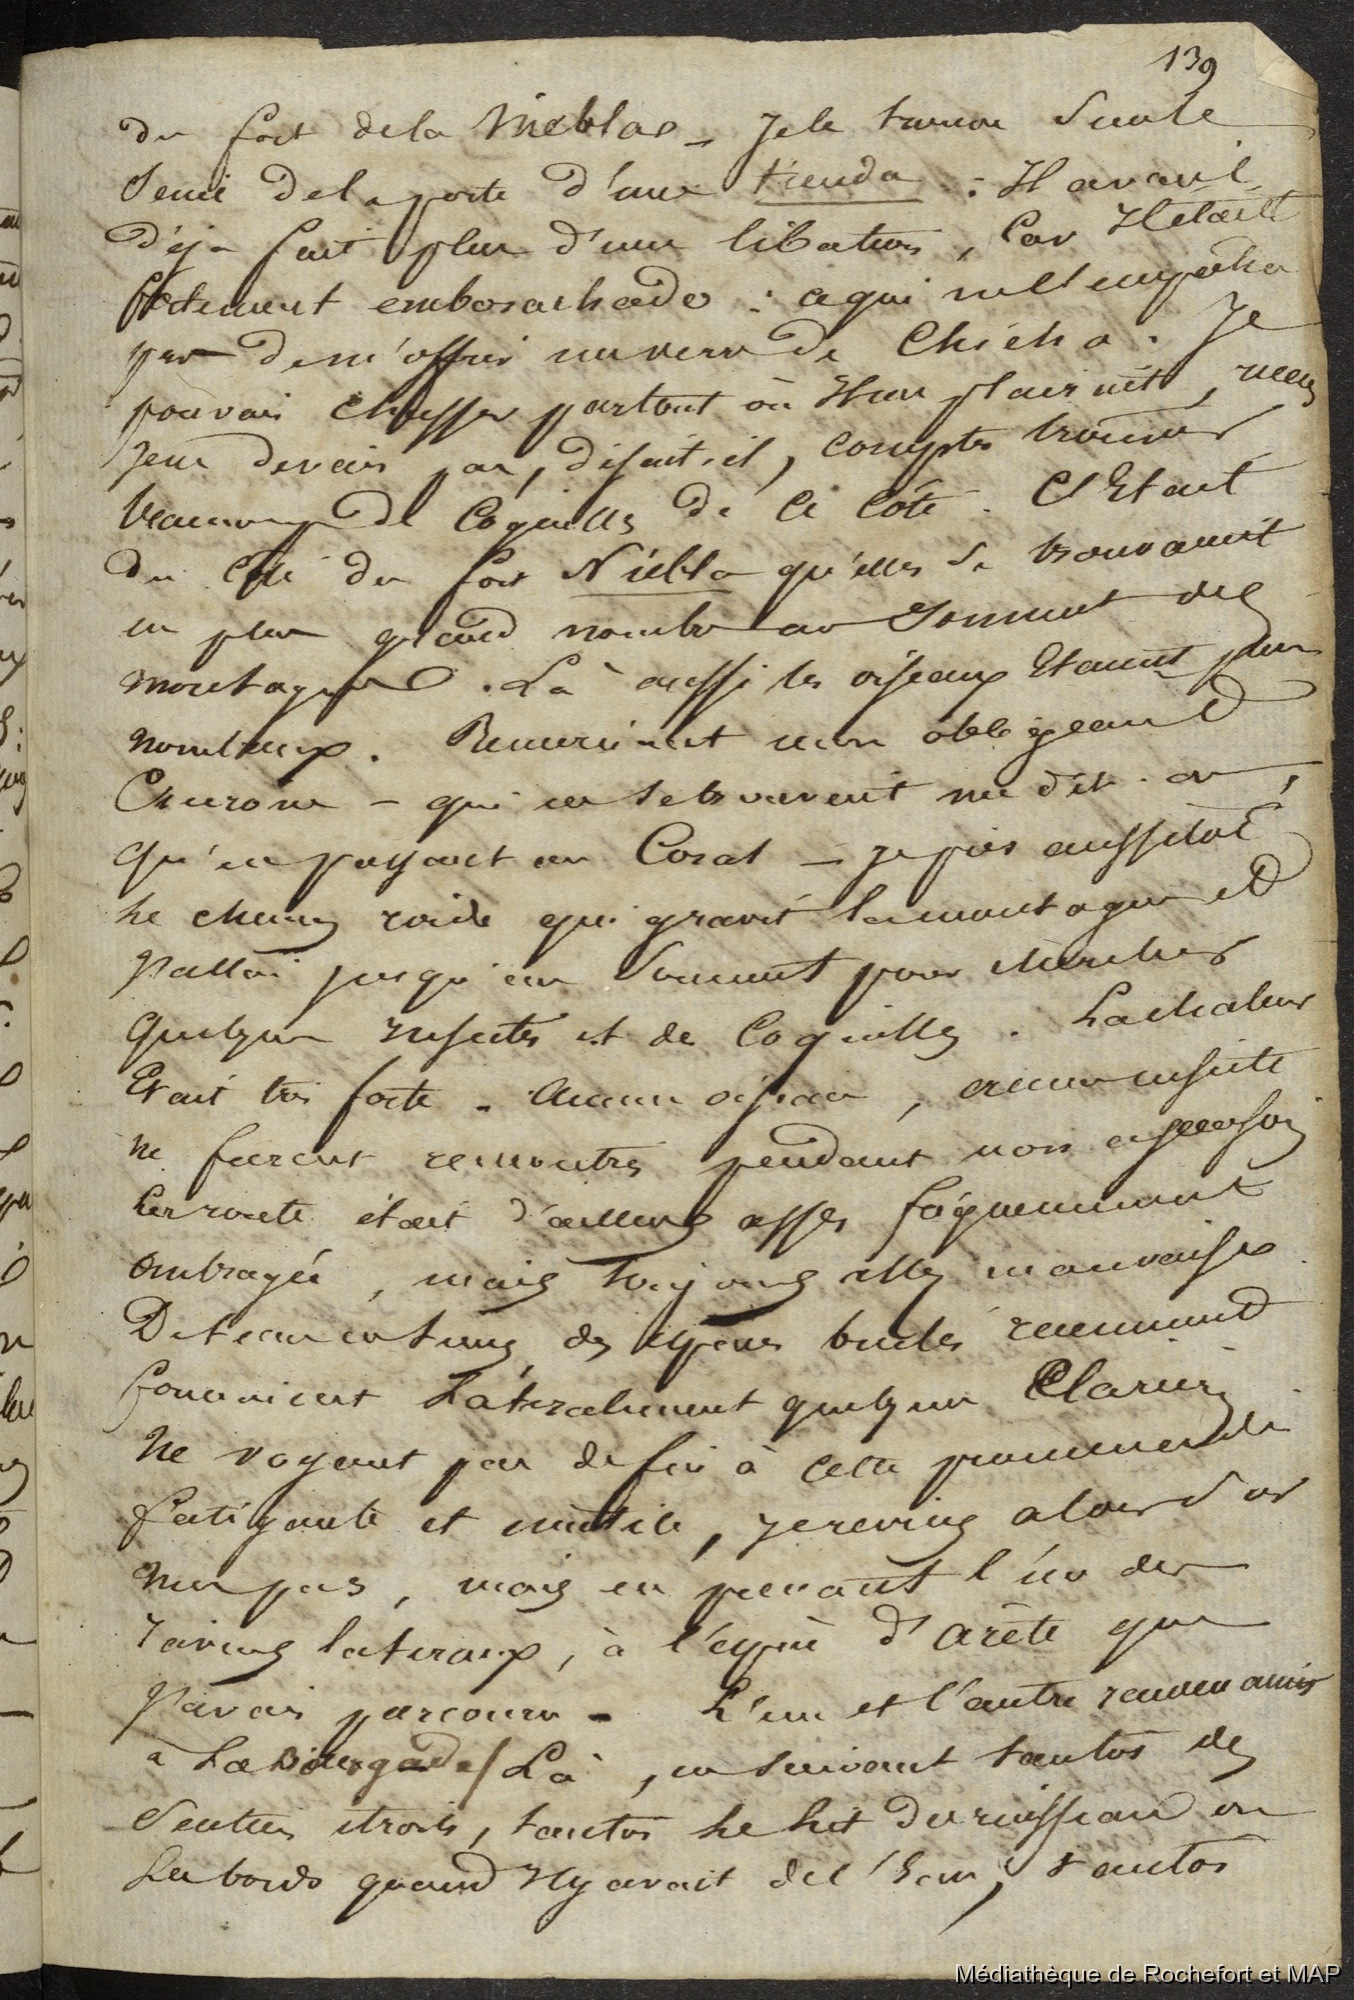 139
du fort de la Nieblas _ Je le trouve sur le
seuil de la porte d'une tienda : Il avait
déja fait plus d'une libation, Car Il était
fortement emborachado : ce qui ne l'empecha
pas de m'offrir un verre de Chicha. Je
pouvais chasser partout où Il me plairait, mais
Je ne devais pas, disait-il, compter trouver
beaucoup de Coquilles de ce côté. C'Etait
du côté du fort Niebla qu'elles se trouvaient
en plus grand nombre au sommet des
montagnes. Là aussi les oiseaux Etaient plus
nombreux. Remerciant mon obligeand
- qui en se trouvent me dit-on,
qu'en payant au Coral _ je pris aussitôt
le chemin roide qui gravit la montagne et
J'allai jusqu'au sommet pour chercher
quelques Insectes et des Coquilles. La chaleur
Etait très forte. Aucun oiseau, aucun insecte
ne furent rencontrés pendant mon ascension
La route était d'ailleurs assez fréquemment
ombragée, mais toujours très mauvaise
De tems en tems, des espaces brulés récemment
formaient Latéralement quelques Clarières
Ne voyant pas de fin à cette promenade
fatigante et inutile, Je revins alors sur
mes pas, mais en prenant l'un des
ravins lateraux, à l'espèce d'arête que
J'avais parcouru - L'un et l'autre ramenaient
à La Là, en suivant tantôt des
sentiers étroits, tantôt le lit du ruisseau ou
Les bords quand Il y avait de l'Eau, tantôt
Médiathèque de Rochefort et MAP